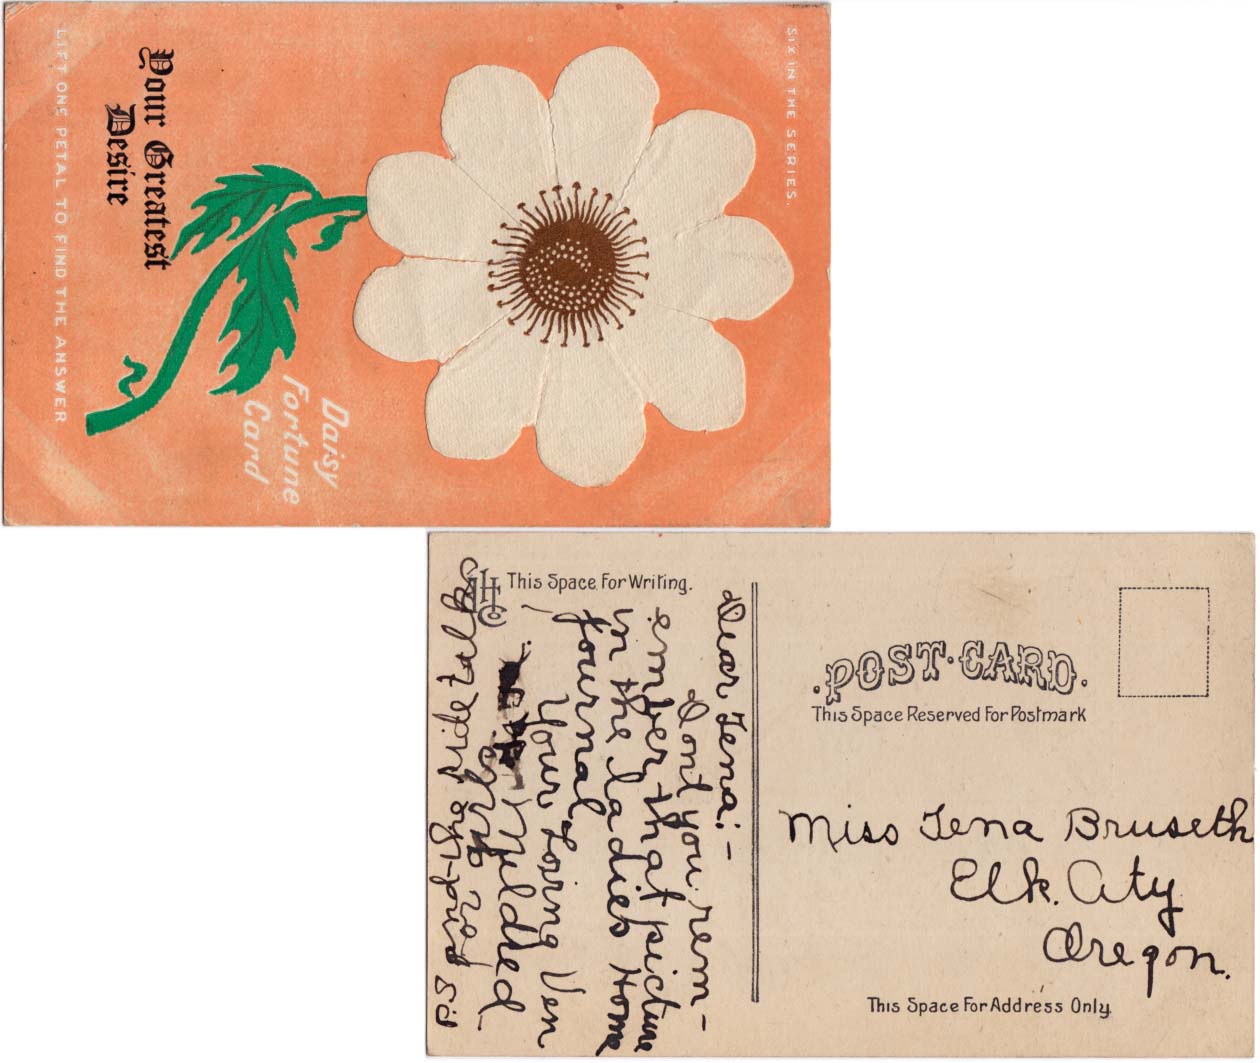 SIX IN THE SERIES.
Daisy
Fortune
Card
Your Greatest
Desire
LIFT ONE PETAL TO FIND THE ANSWER
This Space For Writing.
Dear Tena:-
Dont you rem-
ember that picture
in the ladies Home
Journal,
Your Loving Ven
Mildred
POST CARD.
This Space Reserved For Postmark
Miss Tena Bruseth
Elk. City
Oregon.
This Space For Address Only.